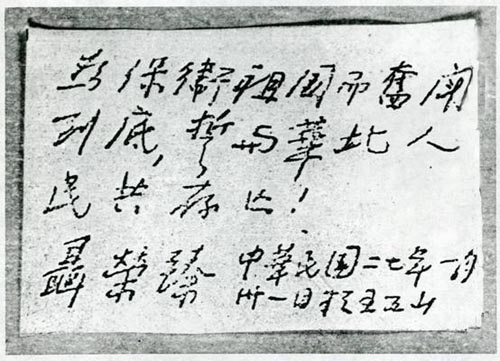 为保衛祖国而奮鬥
到底,誓與華北人
民共存亡!
聶榮臻 中華民国二七年一月
卅一日於五台山